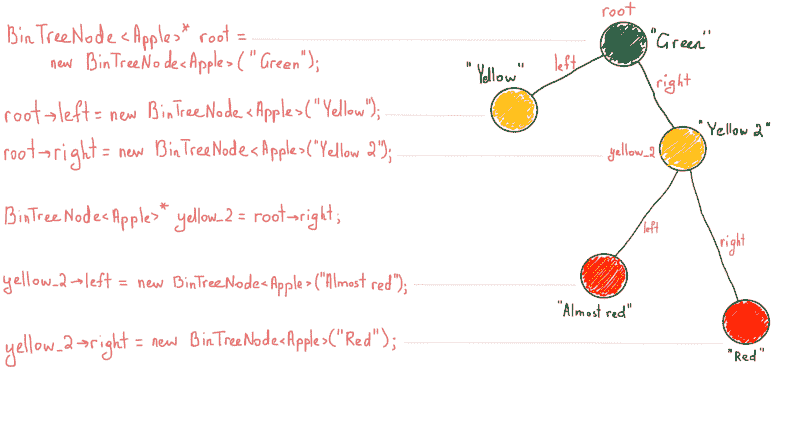 BinTreeNode<Apple>* root =
new BinTreeNode<Apple>("Green");
root→left = new BinTreeNode<Apple>("Yellow");
root→right = new BinTreeNode<Apple>("Yellow 2");
BinTreeNode<Apple>* yellow_2 = root→right;
yellow_2→left = new BinTreeNode<Apple>("Almost red");
yellow_2→right = new BinTreeNode<Apple>("Red");
root
"Green"
left
right
"Yellow"
"Yellow 2"
yellow_2
left
right
"Almost red"
"Red"